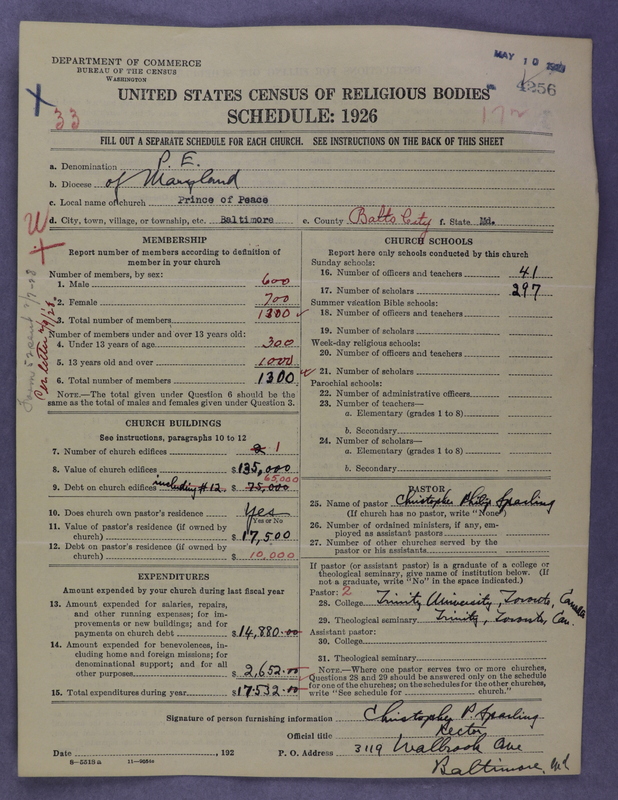 DEPARTMENT OF COMMERCE
BUREAU OF THE CENSUS
WASHINGTON
MAY 10
4256
UNITED STATES CENSUS OF RELIGIOUS BODIES
SCHEDULE: 1926
X
33
172
FILL OUT A SEPARATE SCHEDULE FOR EACH CHURCH. SEE INSTRUCTIONS ON THE BACK OF THIS SHEET
a. Denomination P. E.
b. Diocese of Maryland
c. Local name of church Prince of Peace
d. City, town, village, or township, etc. Baltimore e. County Balto City f. State Md.
MEMBERSHIP
Report number of members according to definition of member in your church
Number of members, by sex:
1. Male 600
2. Female 700
3. Total number of members 1300
Number of members under and over 13 years old:
4. Under 13 years of age 300
5. 13 years old and over 1000
6. Total number of members 1300
NOTE.—The total given under Question 6 should be the
same as the total of males and females given under Question 3.
Per letter
CHURCH BUILDINGS
See instructions, paragraphs 10 to 12
7. Number of church edifices 2 1
8. Value of church edifices $135,000
65,000
9. Debt on church edifices including #12 $75,000
10. Does church own pastor's residence Yes
(Yes or No)
11. Value of pastor's residence (if owned by
church) $17,500
12. Debt on pastor's residence (if owned by
church) $10,000
EXPENDITURES
Amount expended by your church during last fiscal year
13. Amount expended for salaries, repairs,
and other running expenses; for im-
provements or new buildings; and for
payments on church debt $14,880.00
14. Amount expended for benevolences, in-
cluding home and foreign missions; for
denominational support; and for all
other purposes $2,652.00
15. Total expenditures during year $17532.00
CHURCH SCHOOLS
Report here only schools conducted by this church
Sunday schools:
16. Number of officers and teachers 41
17. Number of scholars 297
Summer vacation Bible schools:
18. Number of officers and teachers
19. Number of scholars
Week-day religious schools:
20. Number of officers and teachers
21. Number of scholars
Parochial schools:
22. Number of administrative officers
23. Number of teachers—
a. Elementary (grades 1 to 8)
b. Secondary
24. Number of scholars—
a. Elementary (grades 1 to 8)
b. Secondary
PASTOR
25. Name of pastor Christopher Philip Sparling
(If church has no pastor, write "None")
26. Number of ordained ministers, if any, em-
ployed as assistant pastors
27. Number of other churches served by the
pastor or his assistants
If pastor (or assistant pastor) is a graduate of a college or
theological seminary, give name of institution below. (If
not a graduate, write "No" in the space indicated.)
Pastor: 2
28. College Trinity University, Toronto, Canada
29. Theological seminary Trinity, Toronto, Can.
Assistant pastor:
30. College
31. Theological seminary
NOTE.—Where one pastor serves two or more churches,
Questions 28 and 29 should be answered only on the schedule
for one of the churches; on the schedules for the other churches,
write "See schedule for church."
Signature of person furnishing information Christopher P. Sparling
Official title Rector
Date , 192 P. O. Address 3119 Walbrook Ave
Baltimore, Md
8—5518a 11—9054a